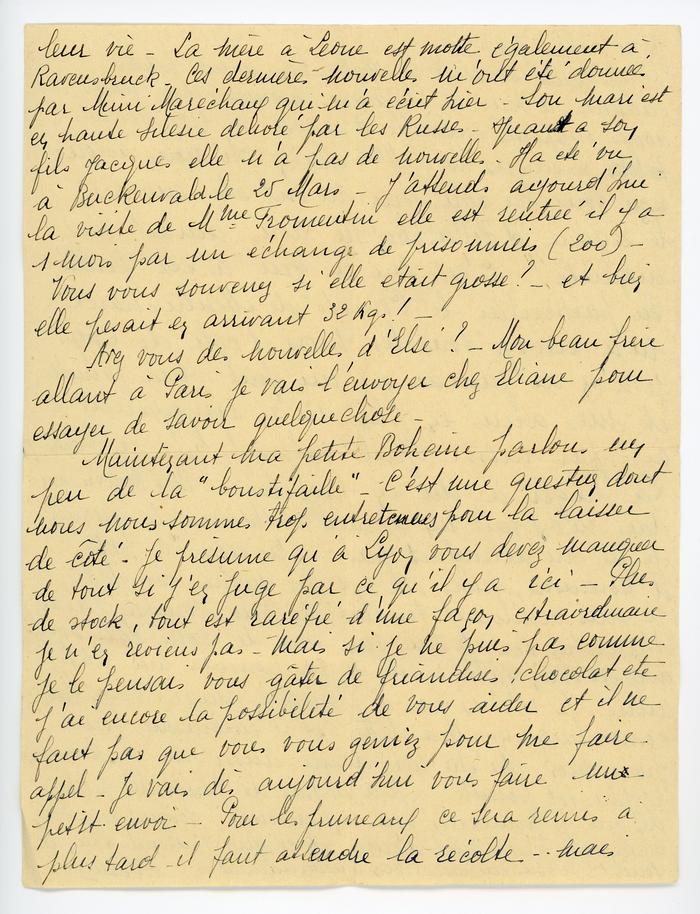 leur vie - La mère à Leone est morte également à
Ravensbruck. Ces dernières nouvelles m'ont été données
par Mimi Marechaux qui m'a écrit hier - Son mari est
en haute Silésie délivré par les Russes - Quant a son
fils Jacques elle n'a pas de nouvelles - Il a été vu
à Buckenwald le 25 Mars - J'attends aujourd'hui
la visite de Mme Fromentin elle est rentrée il y a
1 mois par un échange de prisonniers (200) -
Vous vous souvenez si elle était grosse ? - et bien
elle pesait en arrivant 32 Kgs ! -
Avez vous des nouvelles d'Else ? - Mon beau frère
allant à Paris je vais l'envoyer chez Eliane pour
essayer de savoir quelquechose -
Maintenant ma petite Boheme parlons un
peu de la "boustifaille" - C'est une question dont
nous nous sommes trop entretenues pour la laisser
de côté. Je présume qu'à Lyon vous devez manquer
de tout si j'en juge par ce qu'il y a ici - Plus
de stock, tout est raréfié d'une façon extraordinaire
je n'en reviens pas - Mais si je ne puis pas comme
je le pensais vous gâter de friandises, chocolat etc
j'ai encore la possibilité de vous aider et il ne
faut pas que vous vous geniez pour me faire
appel - Je vais dès aujourd'hui vous faire un
petit envoi - Pour les pruneaux ce sera remis à
plus tard - il faut attendre la récolte - mais